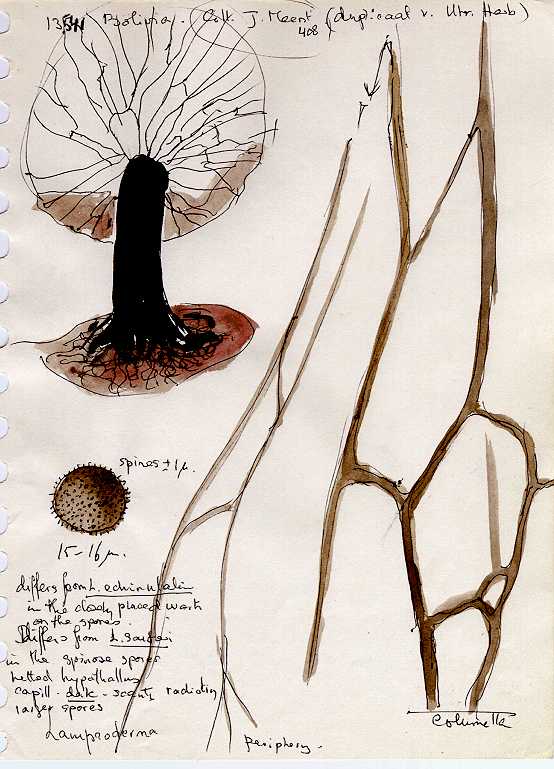 Bolivia. Coll. J. Meent (duplicaat v. Utr. Herb)
408
spines ± 1 µ.
15-16 µ.
differs from L. echinulatum
in the closely placed warts
on the spores.
Differs from L.
in the spinose spores
netted hypothallus
capill. dark - scanty radiating
larger spores
Lamproderma
periphery.
Columella